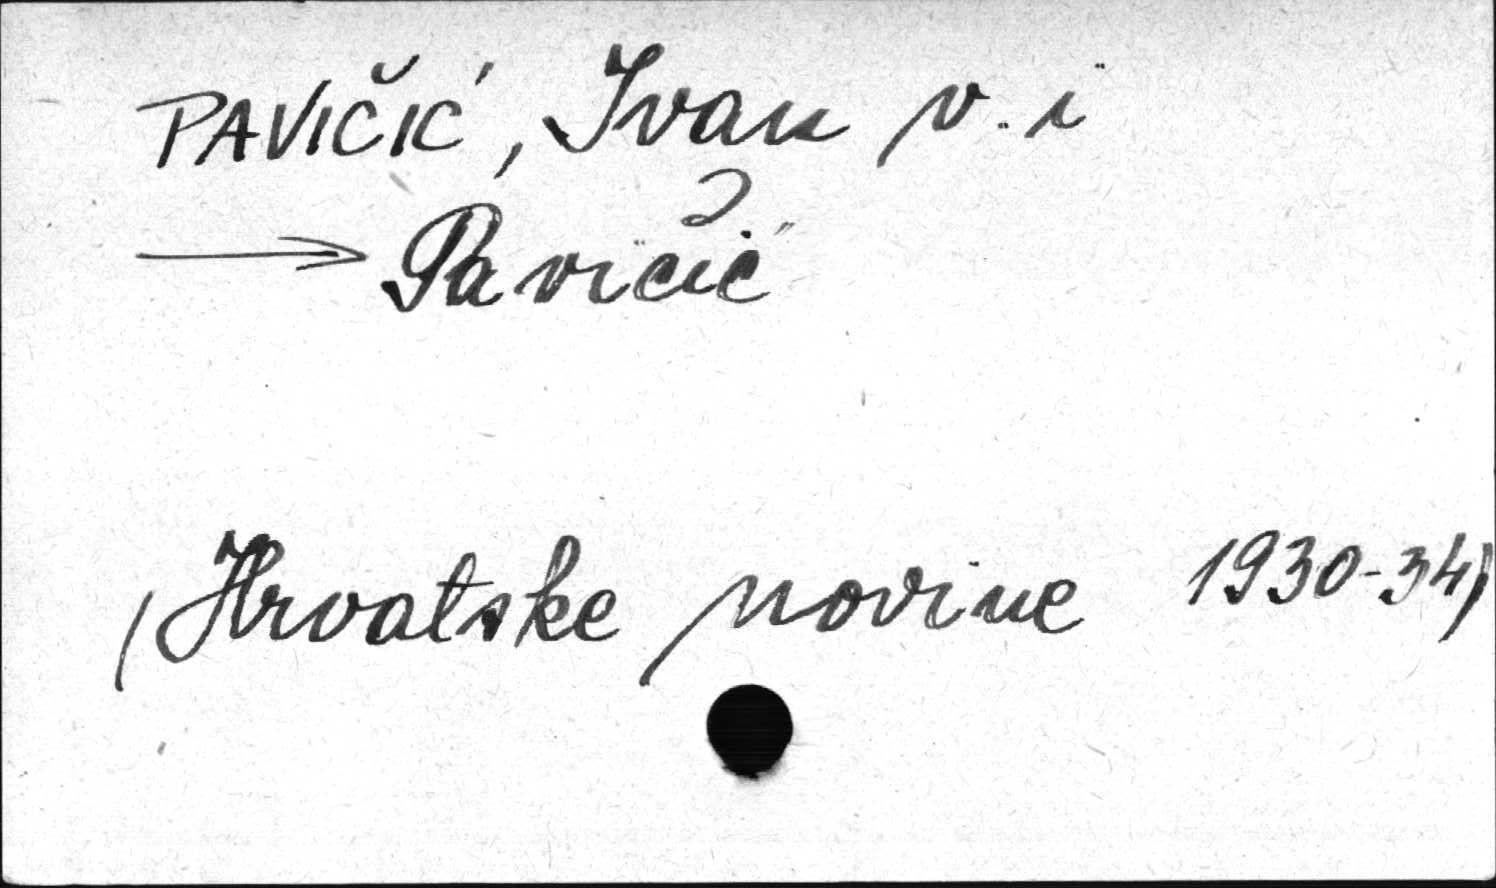 PAVIČIĆ, Ivan v. i
→ Pavičić
(Hrvatske novine 1930-34)